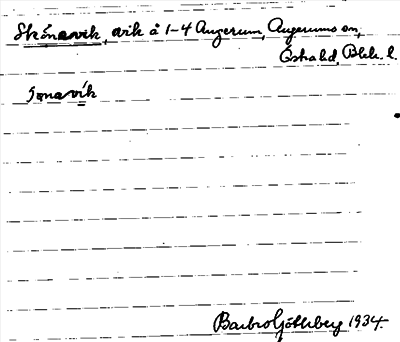 Skönavik, vik å 1-4 Augerum, Augerums sn,
Östra hd, Blek. l.
Barbro Götlberg 1934.